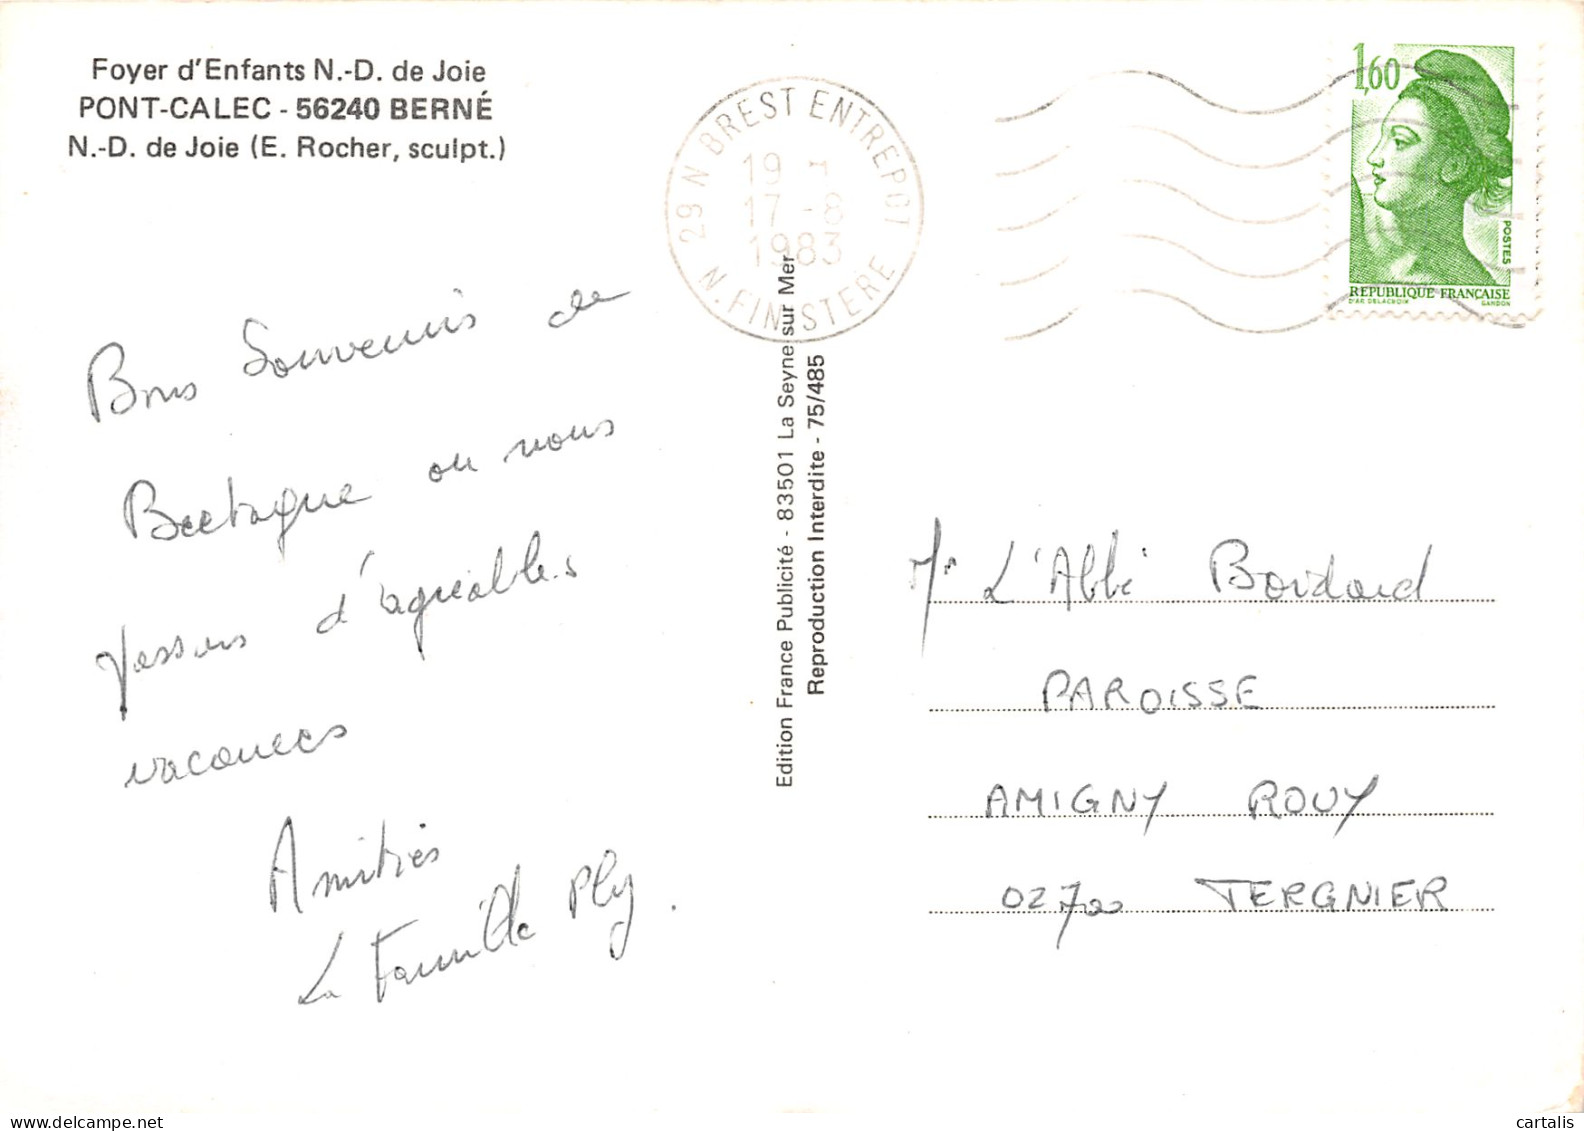 Foyer d'Enfants N.-D. de Joie
PONT-CALEC - 56240 BERNÉ
N.-D. de Joie (E. Rocher, sculpt.)
Bons Souvenirs de
Bretagne ou nous
passons d'agréables
vacances
Amitiés
La Famille Ply.
Edition France Publicité - 83501 La Seyne sur Mer
Reproduction Interdite - 75/485
29 N BREST ENTREPOT
19 H
17 - 8
1983
N. FINISTERE
1,60
POSTES
REPUBLIQUE FRANÇAISE
D'AP. DELACROIX GANDON
Mr L'Abbé Bordard
PAROISSE
AMIGNY ROUY
02700 TERGNIER
cartalis